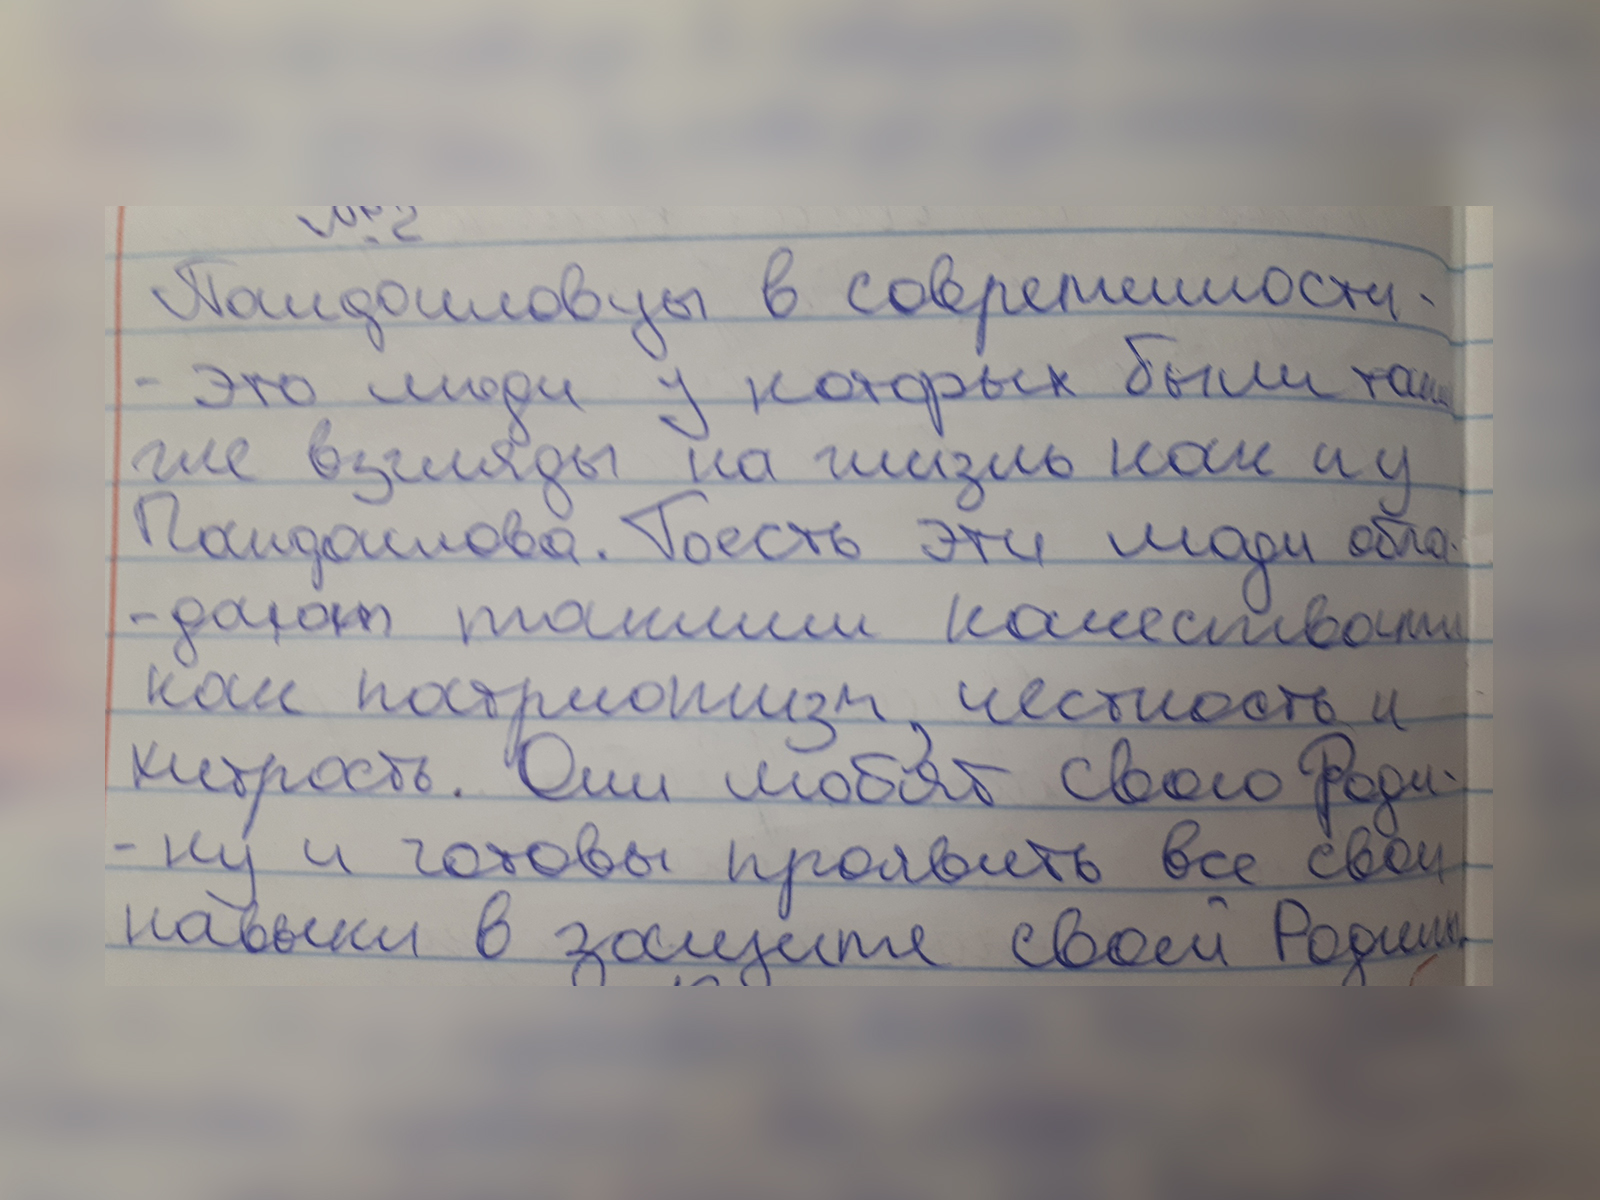 №2
Пандоиловцы в современности-
- это люди у которых были такие
же взгляды на жизнь как и у
Пандоилова. Тоесть эти люди обла-
-дают такими качествами
как патриотизм, честность и
хитрость. Они любят свою Роди-
-ну и готовы проявить все свои
навыки в защите своей Родины